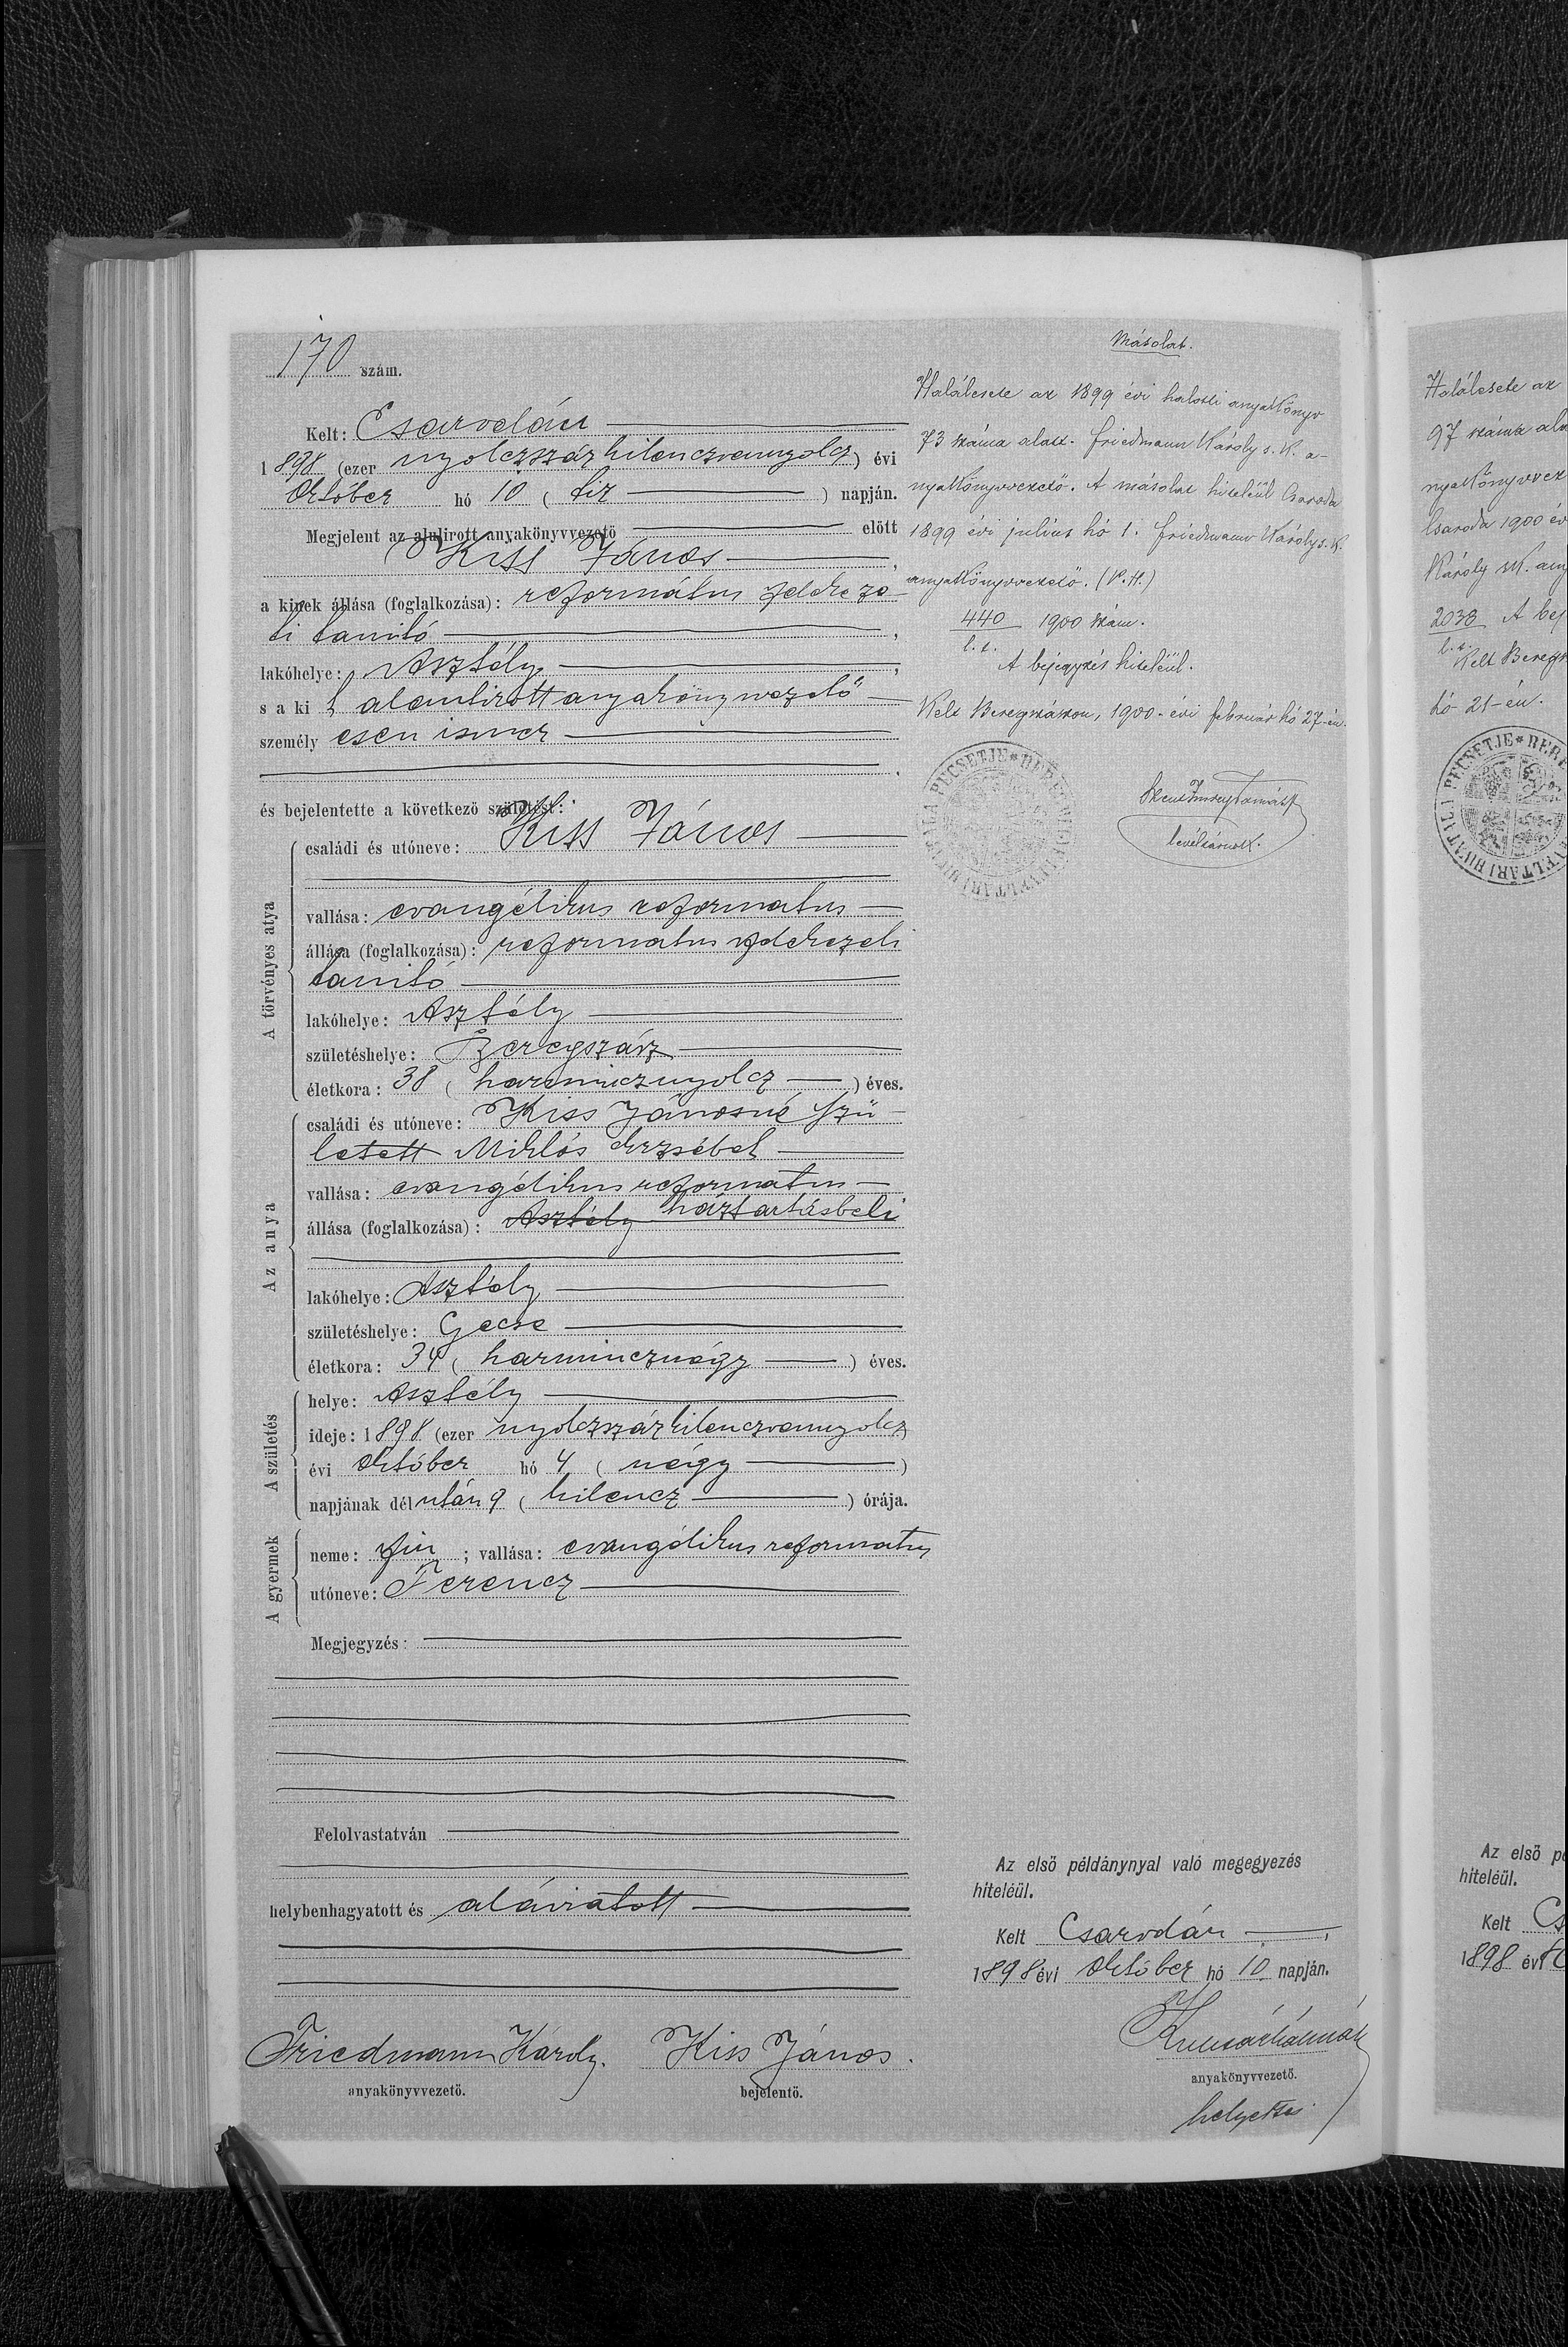 170 szám.
Kelt: Csarodán
1898 (ezer nyolczszázkilenczvennyolcz) évi
Október hó 10 (tíz) napján.
Megjelent az alulirott anyakönyvvezető előtt
Kiss János,
a kinek állása (foglalkozása): református felekeze-
ti tanító,
lakóhelye: Asztély,
s a ki t alantirott anyakönyvvezető
személy esen ismer
és bejelentette a következő születést:
A törvényes atya
családi és utóneve: Kiss János
vallása: evangélikus reformatus
állása (foglalkozása): reformatus felekezeti
tanító
lakóhelye: Asztély
születéshelye: Beregszász
életkora: 38 (harmincznyolcz) éves.
Az anya
családi és utóneve: Kiss Jánosné szü-
letett Miklós Erzsébet
vallása: evangélikus reformatus
állása (foglalkozása): Asztély háztartásbeli
lakóhelye: Asztély
születéshelye: Gecse
életkora: 34 (harmincznégy) éves.
A születés
helye: Asztély
ideje: 1898 (ezer nyolczszázkilenczvennyolcz)
évi Október hó 4 (négy)
napjának délután 9 (kilencz) órája.
A gyermek
neme: fiu; vallása: evangélikus reformatus
utóneve: Ferencz
Megjegyzés:
Felolvastatván
helybenhagyatott és aláiratott
Friedmann Károly. Kiss János.
anyakönyvvezető. bejelentő.
Másolat.
Halálesete az 1899 évi halotti anyakönyv
73 száma alatt. Friedmann Károly s. k. a-
nyakönyvvezető. A másolat hiteléül Csaroda
1899 évi július hó 1. Friedmann Károly s. k.
anyakönyvvezető. (P. H.)
440 1900 szám.
l. t.
A bejegyzés hiteléül.
Kelt Beregszászon, 1900-évi február hó 27-én.
levéltárnok.
Az első példánynyal való megegyezés
hiteléül.
Kelt Csarodán,
1898 évi Október hó 10 napján.
anyakönyvvezető.
helyettes
Halálesete az
97 száma ala
nyakönyvvez
Csaroda 1900 év
Károly sk. any
2038 A bej
l. t.
Kelt Beregs
hó 21-én.
Az első pé
hiteléül.
Kelt Cs
1898 évi